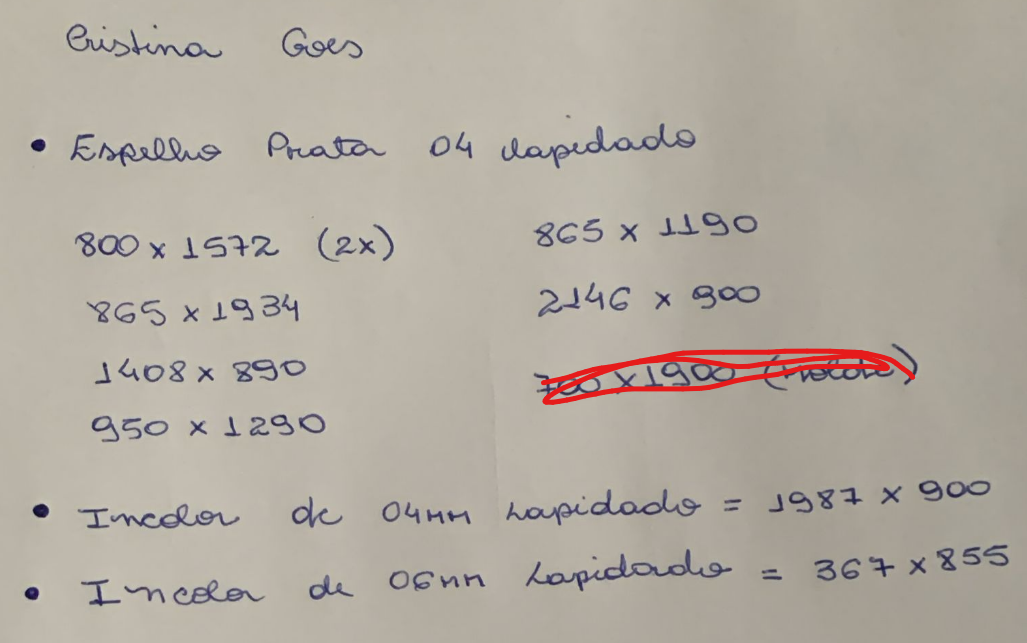 Cristina Goes
• Espelho Prata 04 lapidado
800 x 1572 (2x)
865 x 1934
1408 x 890
950 x 1290
865 x 1190
2146 x 900
700 x 1900 (molde)
• Incolor de 04mm Lapidado = 1987 x 900
• Incolor de 06mm Lapidado = 367 x 855